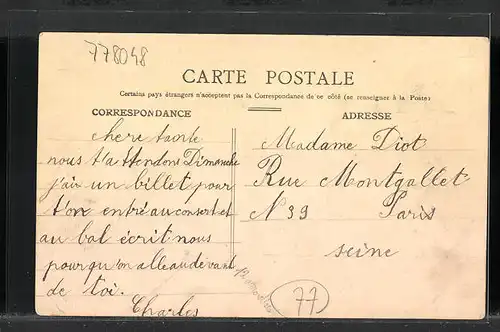 778048
CARTE POSTALE
Certains pays étrangers n'acceptent pas la Correspondance de ce côté (se renseigner à la Poste)
CORRESPONDANCE
chere tante
nous t'attendons Dimanche
j'ai un billet pour
ton entré au consert et
au bal écrit nous
pour qu'on alle audevant
de toi.
Charles
ADRESSE
Madame Diot
Rue Montgallet
N 39 Paris
seine
77